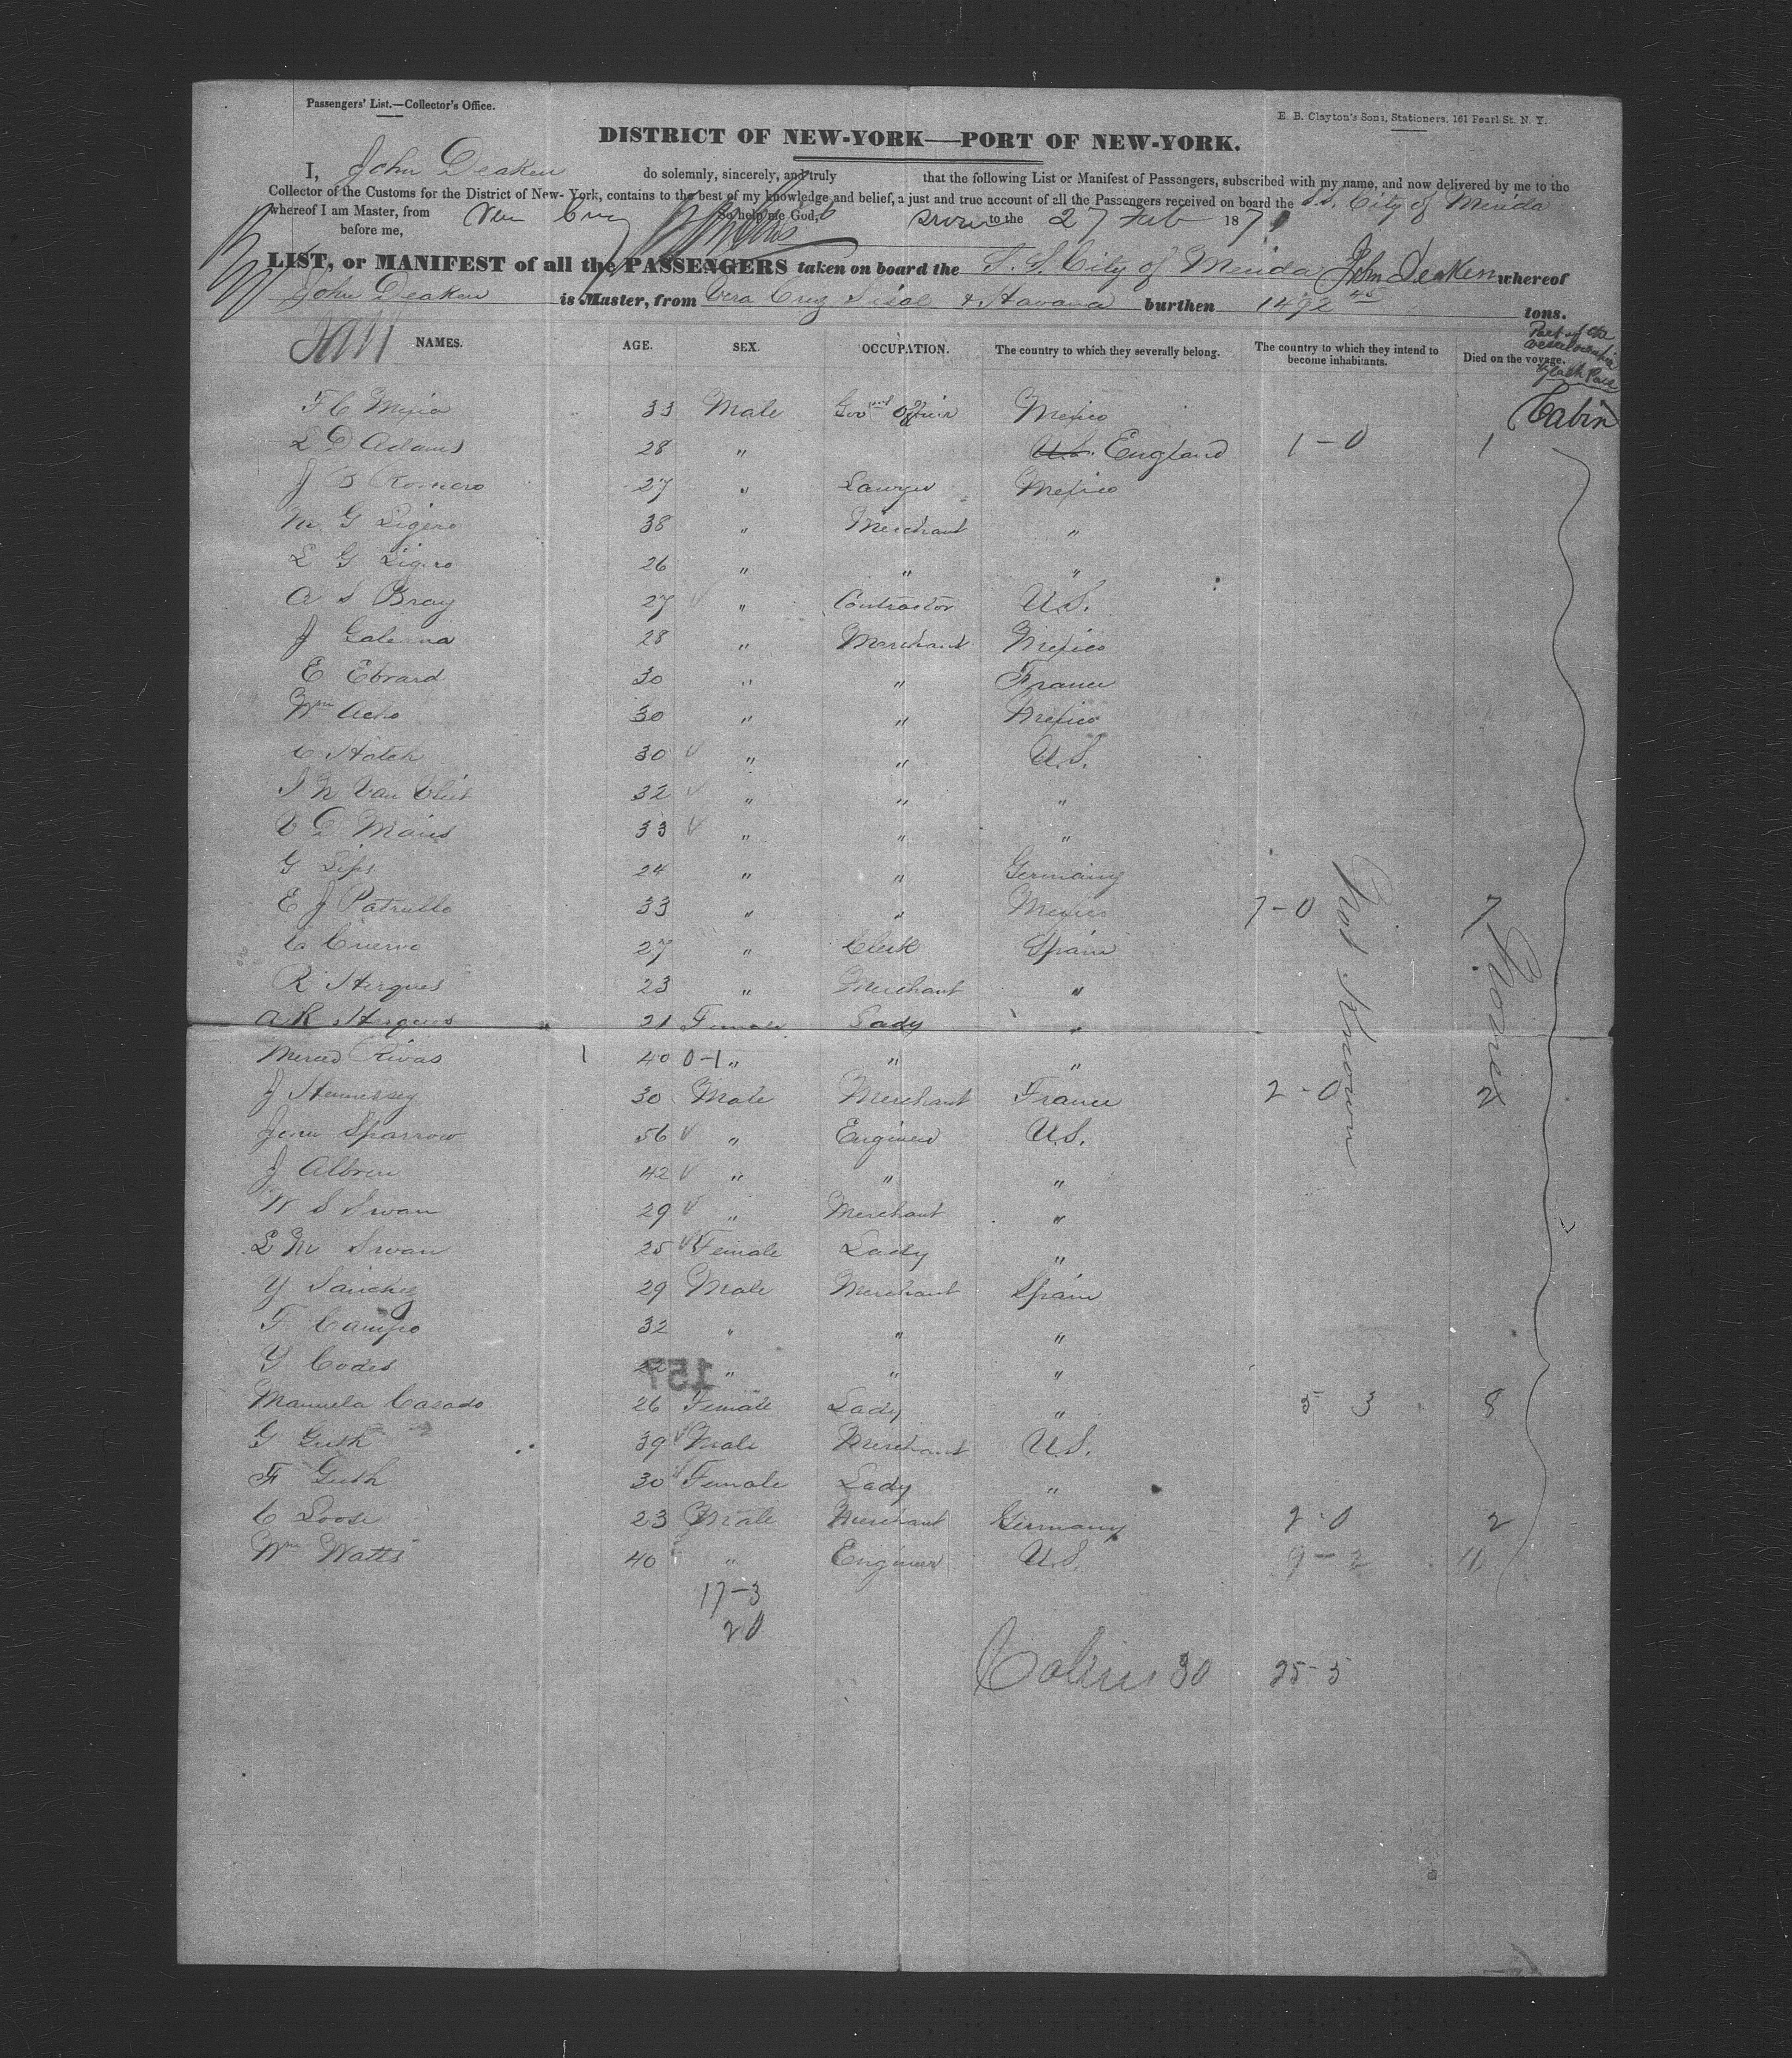 Passengers' List.—Collector's Office.
E. B. Clayton's Sons, Stationers, 161 Pearl St. N. Y.
DISTRICT OF NEW-YORK—PORT OF NEW-YORK.
I, John Deaken do solemnly, sincerely, and truly that the following List or Manifest of Passengers, subscribed with my name, and now delivered by me to the
Collector of the Customs for the District of New-York, contains to the best of my knowledge and belief, a just and true account of all the Passengers received on board the S.S. City of Merida
whereof I am Master, from Vera Cruz So help me God, to the 27 Feb 187
before me,
LIST, or MANIFEST of all the PASSENGERS taken on board the S. S. City of Merida John Deaken whereof
John Deaken is Master, from Vera Cruz Sisal & Havana burthen 1492 45 tons.
NAMES. AGE. SEX. OCCUPATION. The country to which they severally belong. The country to which they intend to become inhabitants. Died on the voyage.
Part of the
Cabin
F C Mejia 33 Male Govmt Mexico
L D Adams 28 " U.S. England 1-0 1
J B Romero 27 " Lawyer Mexico
M G Ligero 38 " Merchant "
L G Ligero 26 " " "
A S Bray 27 " Contractor U.S.
J Galerna 28 " Merchant Mexico
E Ebrard 30 " " France
Wm Acho 30 " " Mexico
C Hatch 30 " " U.S.
J N Van Vliet 32 " " "
V D Maris 33 " " "
G Lips 24 " " Germany
E J Patrullo 33 " " Mexico 7-0 7
C Cuervo 27 " Clerk Spain
R Hergues 23 " Merchant "
A R Hergues 21 Female Lady "
Merced Rivas 1 40 0-1 " " "
J Hennessy 30 Male Merchant France 2-0 2
John Sparrow 56 " Engineer U.S.
J Albren 42 " " "
W S Swan 29 " Merchant "
L M Swan 25 Female Lady "
Y Sanchez 29 Male Merchant Spain
F Campo 32 " " "
Y Codes 22 " " "
157
Manuela Casado 26 Female Lady " 5 3 8
G Guth 39 Male Merchant U.S.
F Guth 30 Female Lady "
C Loose 23 Male Merchant Germany 2-0 2
Wm Watts 40 " Engineer U.S. 9-2 11
Not Known
None
17-3
20
Cabin 30 25-5